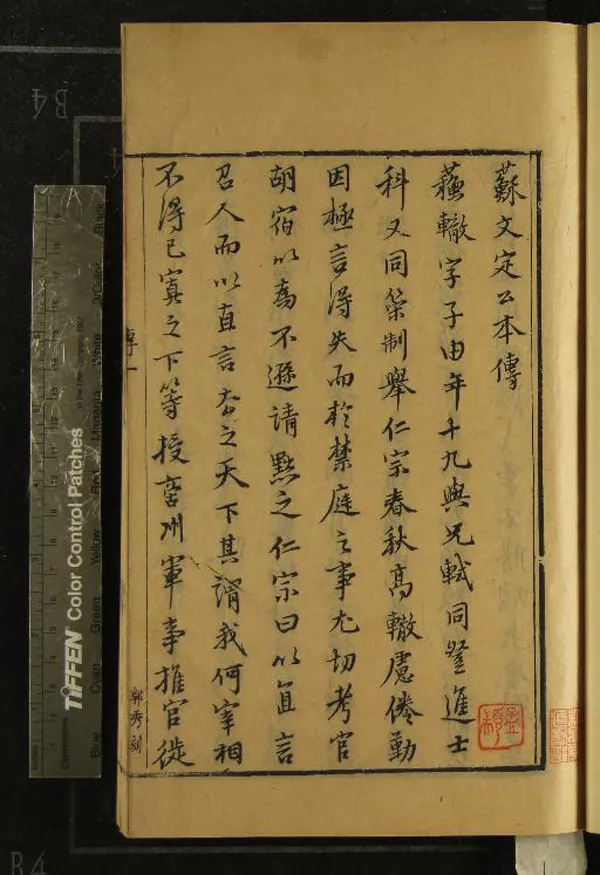 蘇文定公本傳
蘇轍字子由年十九與兄軾同登進士
科又同策制舉仁宗春秋高轍慮倦勤
因極言得失而於禁庭之事尤切考官
胡宿以為不遜請黜之仁宗曰以直言
召人而以直言棄之天下其謂我何宰相
不得已寘之下等授商州軍事推官從
傳一
郭秀刻
TIFFEN Color Control Patches
Blue
Cyan
Green
Yellow
Red
Magenta
White
3/Color
Black
B4
B4